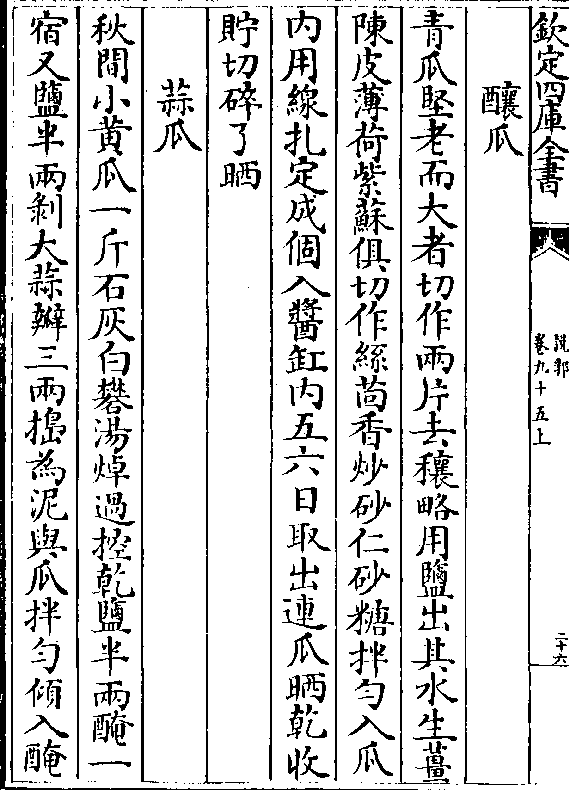 欽定四庫全書
說郛
卷九十五上
二十六
釀瓜
青瓜堅老而大者切作兩片去穰略用鹽出其水生薑
陳皮薄荷紫蘇俱切作絲茴香炒砂仁砂糖拌勻入瓜
内用線扎定成個入醬缸内五六日取出連瓜晒乾收
貯切碎了晒
蒜瓜
秋間小黄瓜一斤石灰白礬湯焯過控乾鹽半兩醃一
宿又鹽半兩剝大蒜瓣三兩搗為泥與瓜拌勻傾入醃